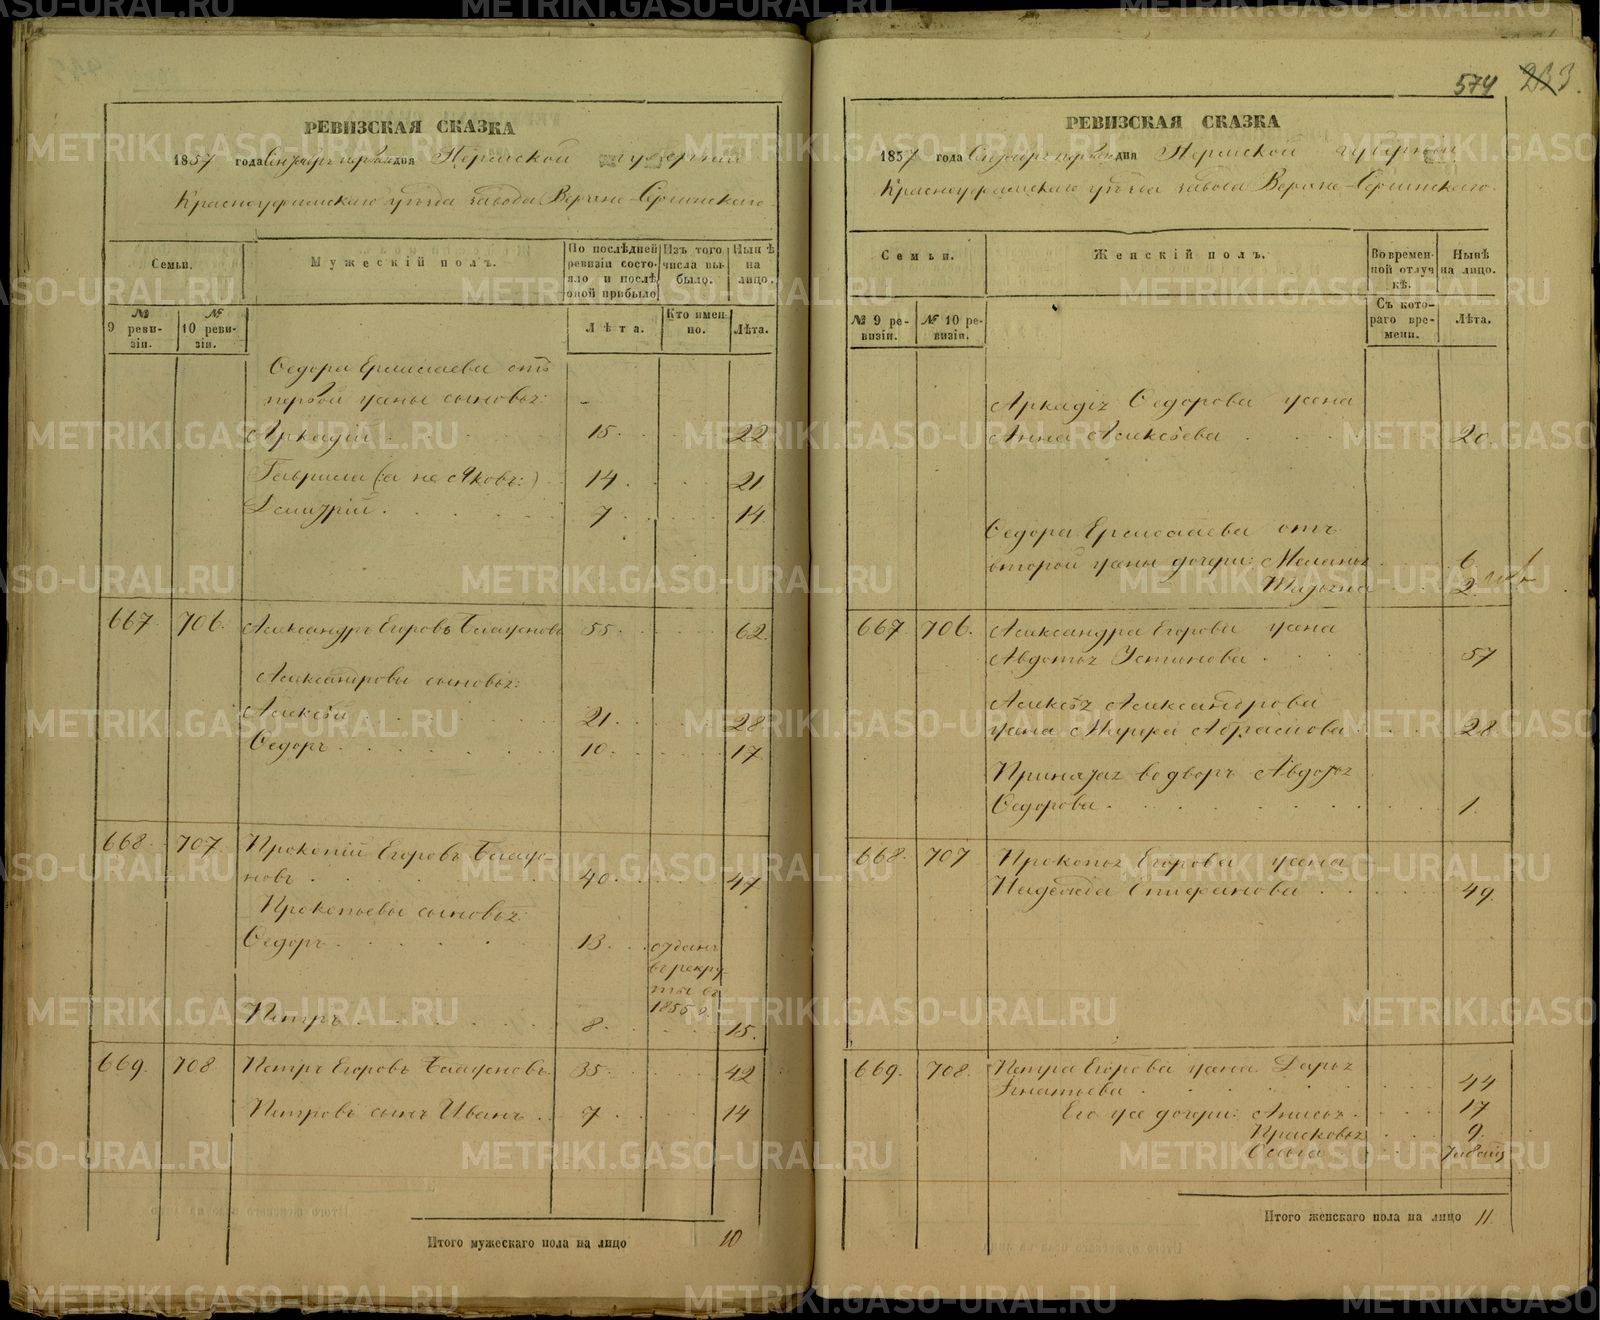 574 233.
РЕВИЗСКАЯ СКАЗКА
1857 года Сентября первого дня Пермской губернии
Красноуфимскаго уезда завода Верхне-Сергинскаго
Семьи.
Мужескій полъ.
По послѣдней ревизіи состояло и послѣ оной прибыло
Изъ того числа выбыло.
Нынѣ на лицо.
№ 9 ревизіи.
№ 10 ревизіи.
Лѣта.
Кто именно.
Лѣта.
Федора Ермолаева отъ
первой жены сыновья:
Аркадій 15. 22
Гаврила (а не Яковъ:) 14. 21
Дмитрій. 7. 14
667. 706. Александръ Егоровъ 55. 62.
Александровы сыновья:
Алексѣй 21. 28
Федоръ. 10. 17
668. 707 Прокопій Егоровъ
новъ 40. 47
Прокопьевы сыновья:
Федоръ. 13. отданъ
въ рекру-
ты въ
1855 г.
Петръ 8. 15.
669. 708 Петръ Егоровъ 35. 42
Петровъ сынъ Иванъ 7 14
Итого мужескаго пола на лицо 10
РЕВИЗСКАЯ СКАЗКА
1857 года Сентября первого дня Пермской губернии
Красноуфимскаго уѣзда завода Верхне-Сергинскаго.
Семьи.
Женскій полъ.
Во временной отлучкѣ.
Нынѣ на лицо.
№ 9 ревизіи.
№ 10 ревизіи.
Съ котораго времени.
Лѣта.
Аркадія Федорова жена
Анна Алексѣева 20.
Федора Ермолаева отъ
второй жены дочери: Меланья 6.
Татьяна 2.
667. 706. Александра Егорова жена
Авдотья Устинова 57
Алексѣя Александрова
жена Марфа Абрамова 28
Принятая во дворъ Авдотья
Федорова. 1.
668. 707 Прокопья Егорова жена
Надежда Епифанова 49.
669. 708. Петра Егорова жена Дарья
Игнатьева 44
Его же дочери: Анисья 17
Прасковья 9.
Итого женскаго пола на лицо 11.
METRIKI.GASO-URAL.RU